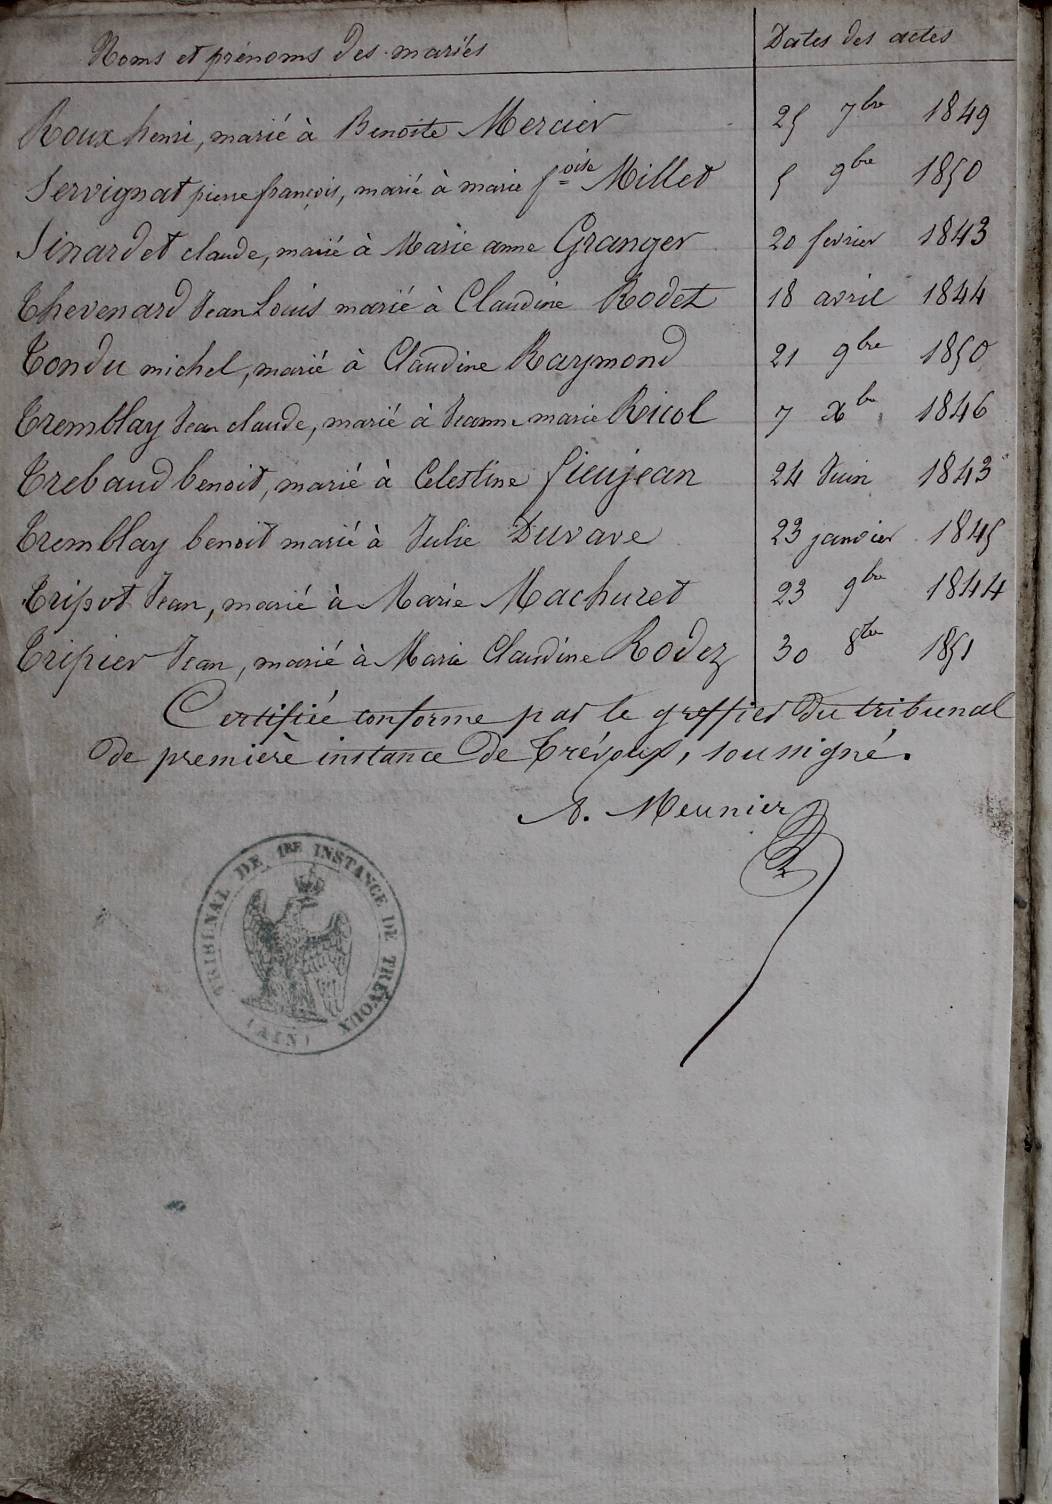 Noms et prénoms des mariés Dates des actes
Roux henri, marié à Benoîte Mercier 25 7bre 1849
Servignat pierre françois, marié à marie foise Millet 5 9bre 1850
Sinardet claude, marié à Marie anne Granger 20 fevrier 1843
Thevenard Jean Louis marié à Claudine Rodet 18 avril 1844
Tondu michel, marié à Claudine Raymond 21 9bre 1850
Tremblay Jean claude, marié à Jeanne marie Ricol 7 Xbre 1846
Trebaud benoit, marié à Celestine fieujean 24 Juin 1843
Tremblay benoit marié à Julie Duvave 23 janvier 1845
Tripot Jean, marié à Marie Machuret 23 9bre 1844
Tripier Jean, marié à Marie Claudine Rodez 30 8bre 1851
Certifié conforme par le greffier du tribunal
de première instance de Trévoux, soussigné.
A. Meunier
TRIBUNAL DE 1RE INSTANCE DE TRÉVOUX
(AIN)